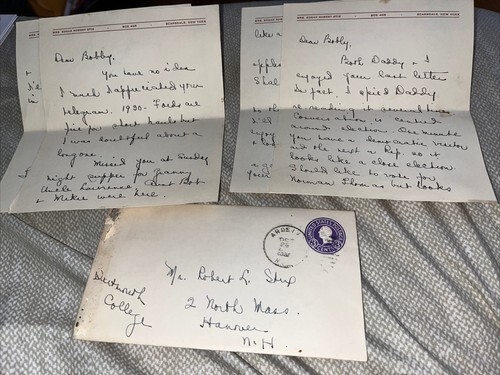 MRS. EDGAR ROBERT STIX
BOX 468
SCARSDALE, NEW YORK
Dear Bobby,
You have no idea
how much I appreciated your
telegram. 1930 - Fords are
fine for short hauls but
I was doubtful about a
long one.
Missed you at Sunday
night supper for Granny
Uncle Lawrence Aunt Bob
+ Mekee were here.
MRS. EDGAR ROBERT STIX
SCARSDALE, NEW YORK
like a
apples
Dear Bobby,
Both Daddy + I
enjoyed your last letter
In fact, I spied Daddy
re-reading it several times
Conversation is centered
around election. One minute
you have a democratic victor
and the next a Rep. so it
looks like a close election.
I should like to vote for
Norman Thomas but looks
UNITED STATES POSTAGE
Mr. Robert L. Stix
2 North Mass.
Hanover
N.H.
Dartmouth
College